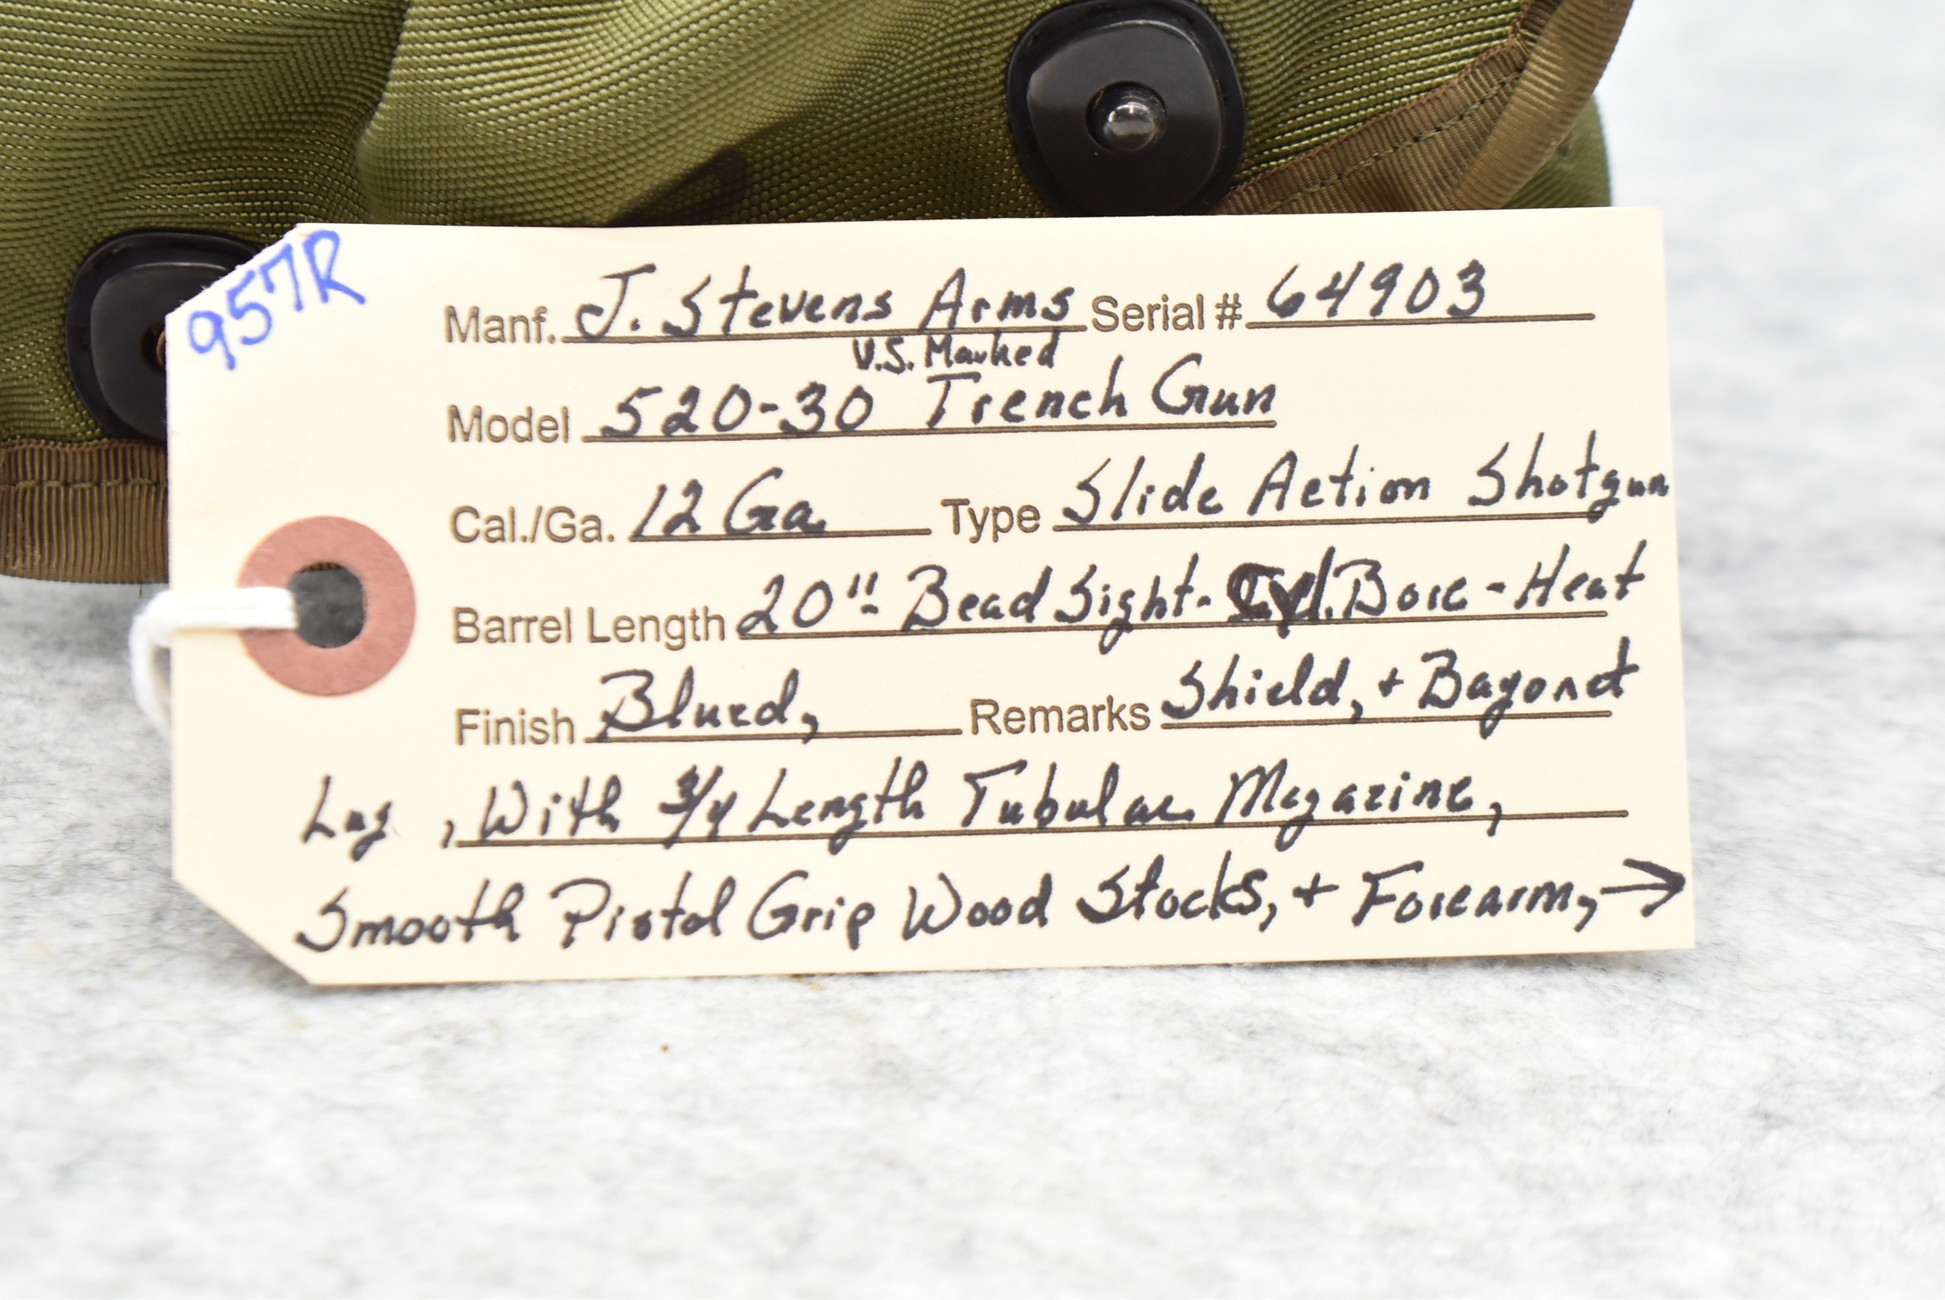 957R
Manf. J. Stevens Arms Serial # 64903
U.S. Marked
Model 520-30 Trench Gun
Cal./Ga. 12 Ga. Type Slide Action Shotgun
Barrel Length 20"- Bead Sight- Cyl. Bore - Heat
Finish Blued, Remarks Shield, + Bayonet
Lug , With 3/4 Length Tubular Magazine,
Smooth Pistol Grip Wood Stocks, + Forearm, →